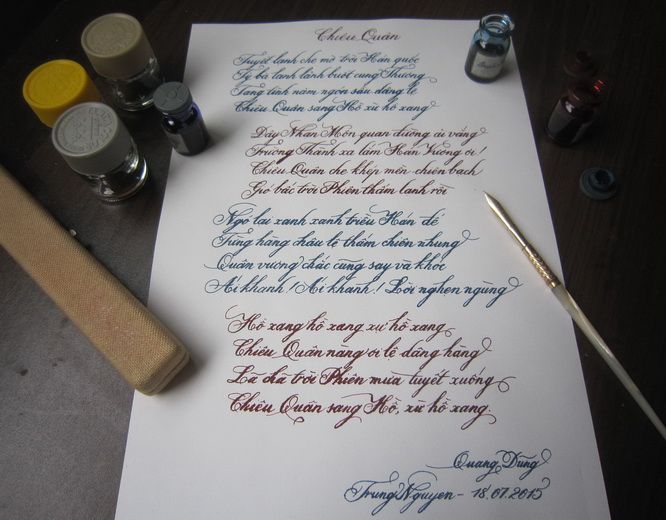 Chiêu Quân
Tuyết lạnh che mờ trời Hán quốc
Tỳ bà lanh lảnh buốt cung Thương
Tang tình năm ngón sầu dâng lệ
Chiêu Quân sang Hồ xừ hồ xang
Đây Nhạn Môn quan đường ải vắng
Trường Thành xa lắm Hán Vương ơi!
Chiêu Quân che khép mền chiên bạch
Gió bấc trời Phiên thấm lạnh rồi
Ngó lại xanh xanh triều Hán đế
Từng hàng châu lệ thấm chiên nhung
Quân vương chắc cũng say và khóc
Ái khanh! Ái khanh! Lời nghẹn ngùng
Hồ xang hồ xang xự hồ xang
Chiêu Quân nàng ơi lệ dâng hàng
Lã chã trời Phiên mưa tuyết xuống
Chiêu Quân sang Hồ, xừ hồ xang.
Quang Dũng
Trung Nguyen - 18.07.2015